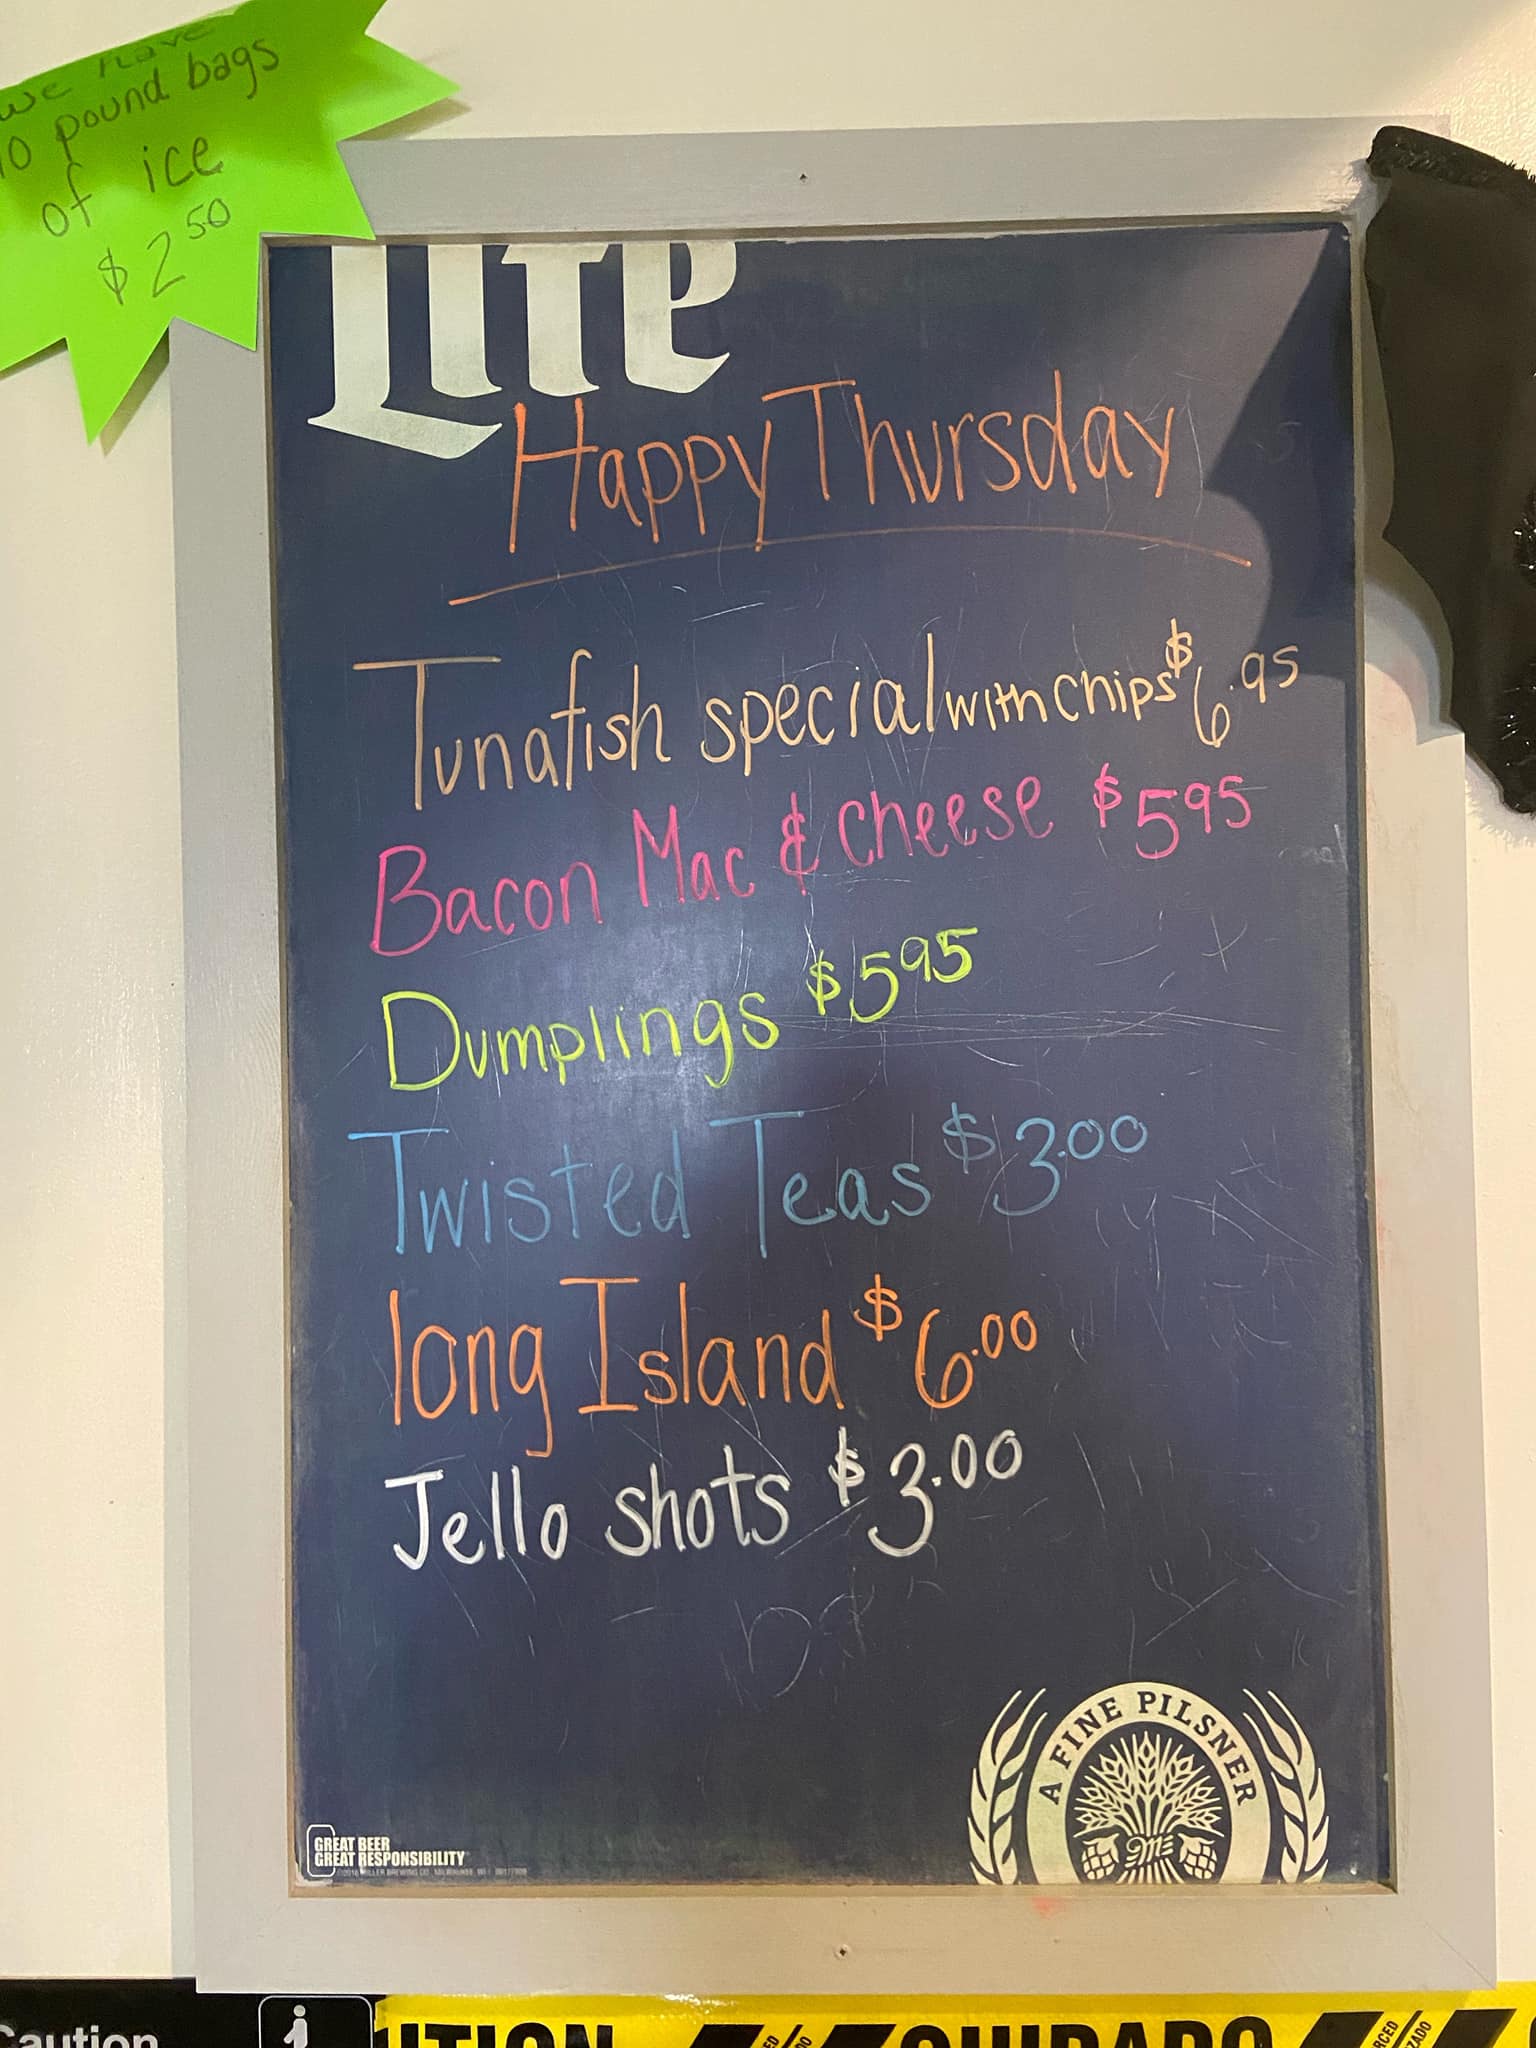 we have
10 pound bags
of ice
$2.50
Lite
Happy Thursday
Tunafish special with chips $6.95
Bacon Mac & cheese $5.95
Dumplings $5.95
Twisted Teas $3.00
long Island $6.00
Jello shots $3.00
A FINE PILSNER
GREAT BEER
GREAT RESPONSIBILITY
Caution
UTION CUIDADO